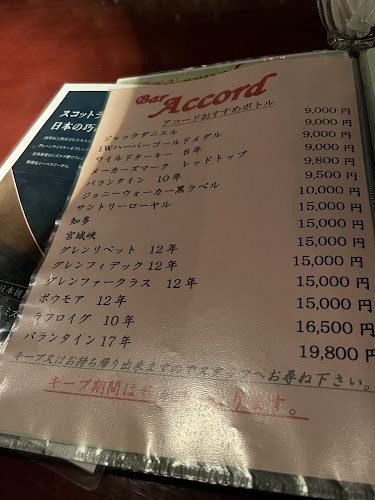 Bar Accord
アコードおすすめボトル
ジャックダニエル 9,000 円
I.Wハーパーゴールドメダル 9,000 円
ワイルドターキー 8年 9,000 円
メーカーズマーク レッドトップ 9,000 円
バランタイン 10年 9,800 円
ジョニーウォーカー黒ラベル 9,500 円
サントリーローヤル 10,000 円
知多 15,000 円
宮城峡 15,000 円
グレンリベット 12年 15,000 円
グレンフィデック12年 15,000 円
グレンファークラス 12年 15,000 円
ボウモア 12年 15,000 円
ラフロイグ 10年 16,500 円
バランタイン17年 19,800 円
キープ又はお持ち帰り出来ますのでスタッフへお尋ね下さい。
キープ期間は ります。
スコット
日本の巧